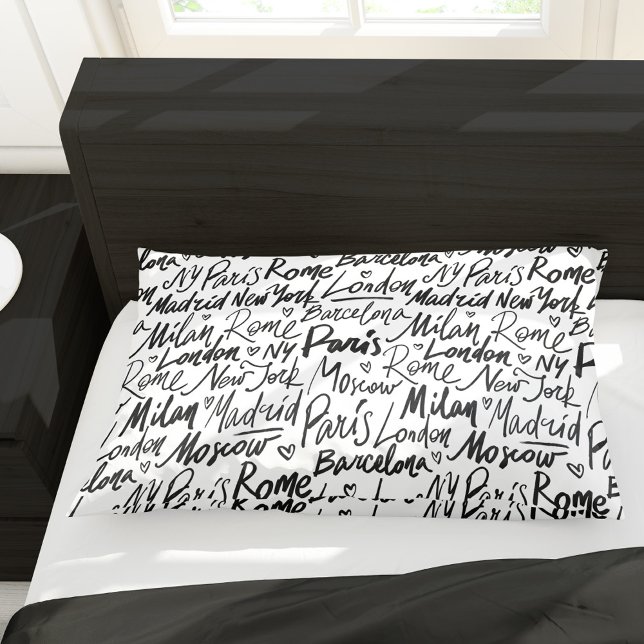 Barcelona Moscow
lona NY Paris Rome London NY Paris Rome
Madrid New York Barcelona Madrid New York
Milan Rome Paris Milan Rome
London NY Rome London NY
Rome New York Moscow New York
Milan Madrid Paris Milan Madrid
London Moscow London Moscow
elona Barcelona
NY Paris Rome NY Paris Rome